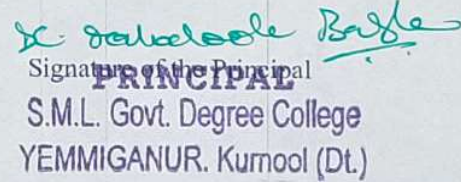 Signature of the Principal
PRINCIPAL
S.M.L. Govt. Degree College
YEMMIGANUR. Kurnool (Dt.)